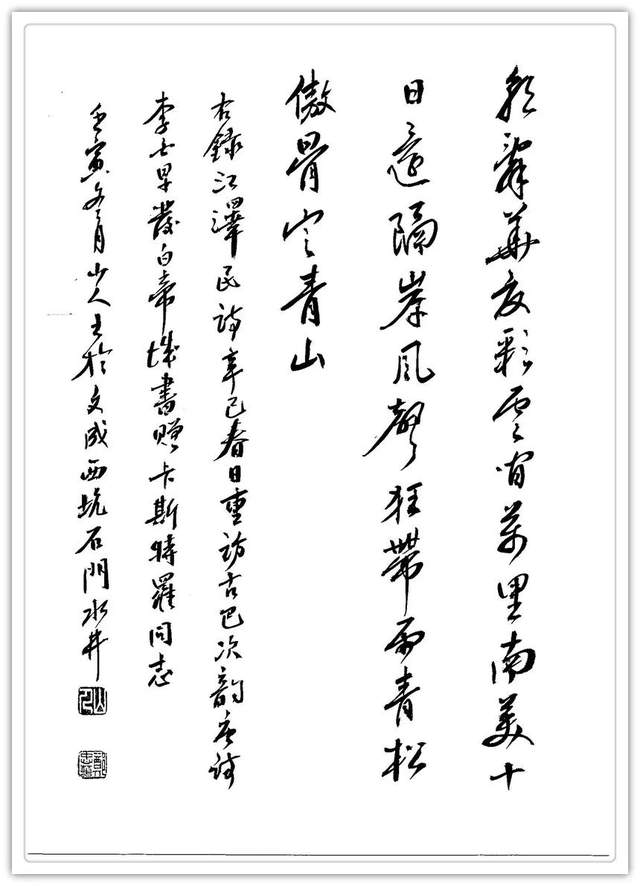 朝辭華夏彩雲間萬里南美十
日還隔岸风聲狂帶雨青松
傲骨定青山
右錄江澤民詩辛巳春日重訪古巴次韵唐詩
李早發白帝城書贈卡斯特羅同志
壬寅月山人於文成西坑石門水井